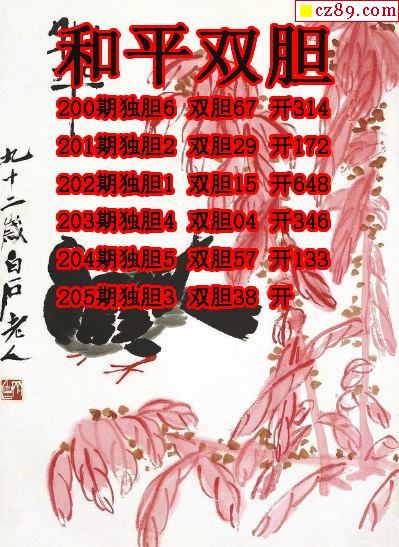 cz89.com
和平双胆
200期独胆6 双胆67 开314
201期独胆2 双胆29 开172
202期独胆1 双胆15 开648
203期独胆4 双胆04 开346
204期独胆5 双胆57 开133
205期独胆3 双胆38 开
九十二岁白石老人